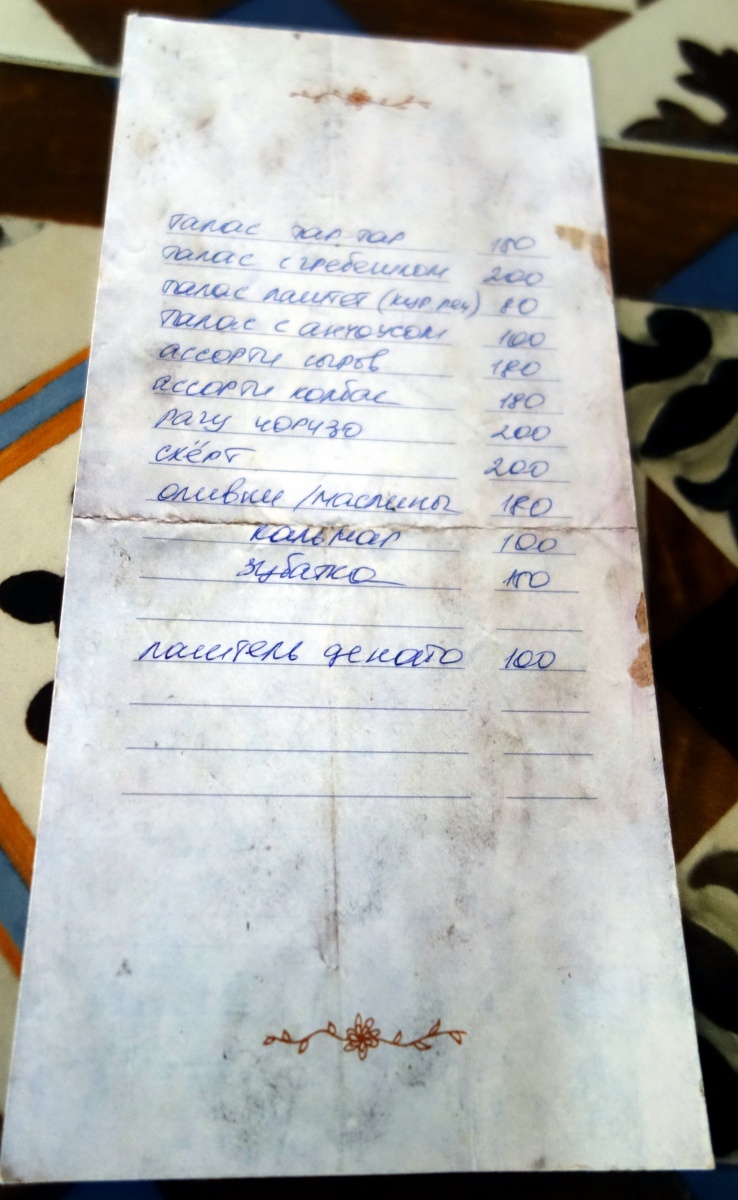 тапас тар-тар 150
тапас с гребешком 200
тапас паштет (кур. печ) 80
тапас с анчоусом 100
ассорти сыров 180
ассорти колбас 180
рагу чоризо 200
скёрт 200
оливки / маслины 180
кальмар 100
зубатка 150
паштель де ната 100